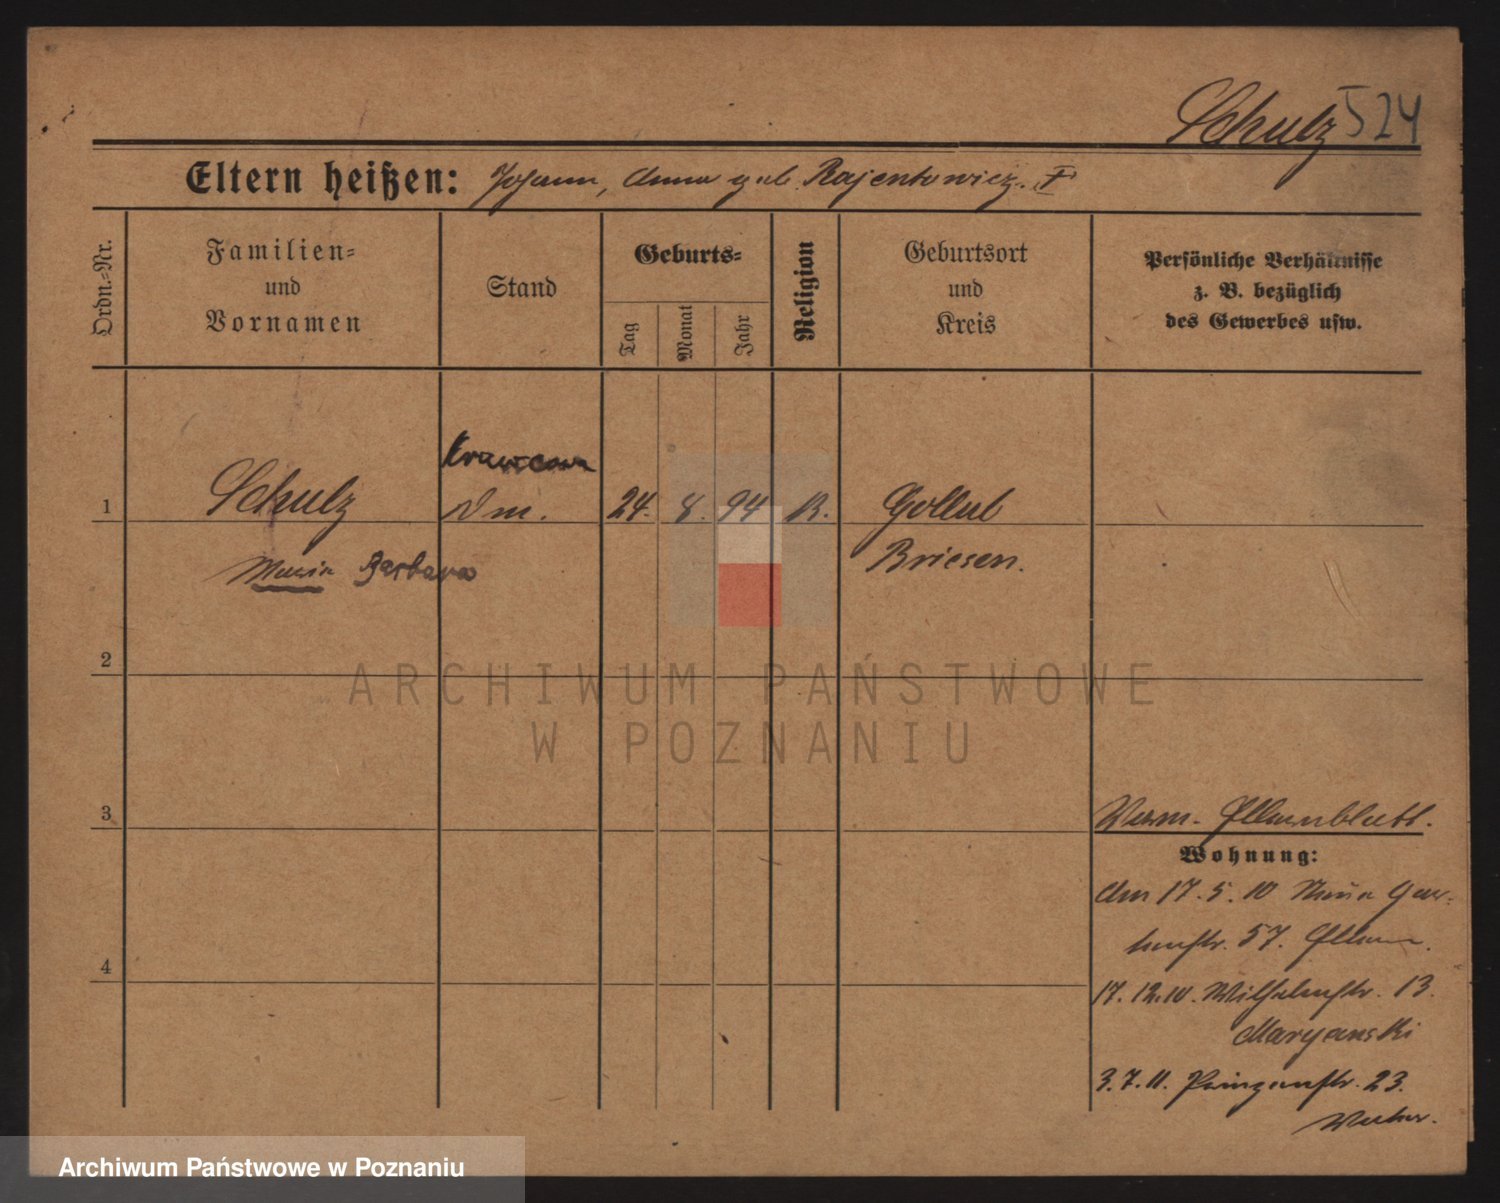 Schulz 524
Eltern heißen: Johann, Anna geb. Rajentowicz.
Ordn.-Nr.
Familien-
und
Vornamen
Stand
Geburts-
Tag
Monat
Jahr
Religion
Geburtsort
und
Kreis
Persönliche Verhältnisse
z. B. bezüglich
des Gewerbes usw.
Krawcowa
1 Schulz Dm. 24. 8. 94 K. Gollub
Maria Barbara Briesen.
2
ARCHIWUM PAŃSTWOWE
W POZNANIU
3
Elternblatt.
Wohnung:
Am 17.5.10 Neue Gar-
tenstr. 57. Eltern.
4
17.12.10. Wilhelmstr. 13.
Maryanski
3.7.11. Prinzenstr. 23.
Archiwum Państwowe w Poznaniu